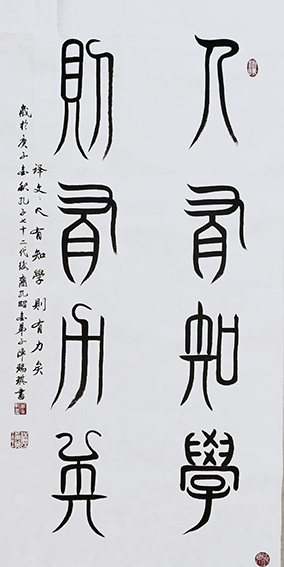 人有知學
則有力矣
译文：人有知學則有力矣
歲於庚子金秋孔子七十二代後裔孔昭金弟子萍瑞琪書